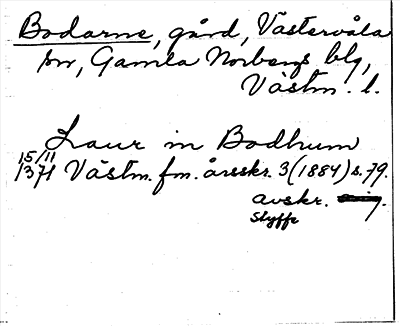 Bodarne, gård, Västervåla
sn, Gamla Norbergs blg,
Västm. l.
Laur in Bodhum
15/11
1371 Västm. fm. årsskr. 3 (1884) s. 79.
avskr.
Styffe